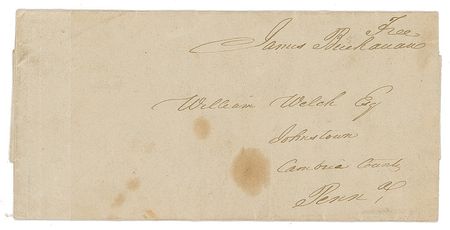 Free
James Buchanan
William Welch Esq
Johnstown
Cambria County
Penna